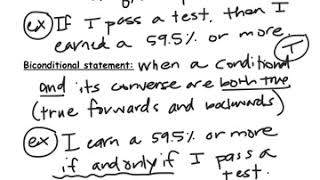 ex If I pass a test, then I
earned a 59.5% or more.
T
Biconditional statement: when a conditional
and its converse are both true
(true forwards and backwards)
ex I earn a 59.5% or more
if and only if I pass a
test.